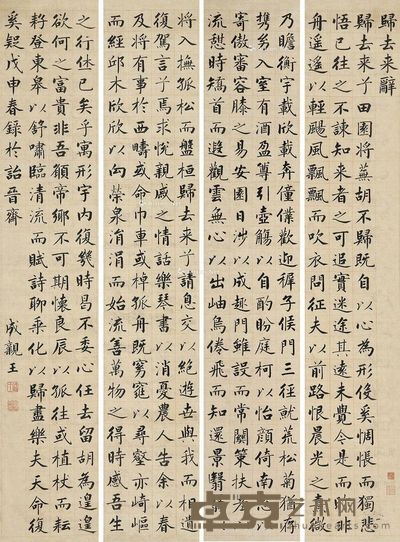 歸去來辭
歸去來兮田園將蕪胡不歸既自以心為形役奚惆悵而獨悲
悟已往之不諫知來者之可追實迷途其未遠覺今是而昨非
舟遙遙以輕颺風飄飄而吹衣問征夫以前路恨晨光之熹微
乃瞻衡宇載欣載奔僮僕歡迎稚子候門三徑就荒松菊猶存
攜幼入室有酒盈尊引壺觴以自酌眄庭柯以怡顏倚南窗以
寄傲審容膝之易安園日涉以成趣門雖設而常關策扶老以
流憩時矯首而遐觀雲無心以出岫鳥倦飛而知還景翳翳以
將入撫孤松而盤桓歸去來兮請息交以絕遊世與我而相遺
復駕言兮焉求悅親戚之情話樂琴書以消憂農人告余以春
及將有事於西疇或命巾車或棹孤舟既窈窕以尋壑亦崎嶇
而經邱木欣欣以向榮泉涓涓而始流善萬物之得時感吾生
之行休已矣乎寓形宇內復幾時曷不委心任去留胡為遑遑
欲何之富貴非吾願帝鄉不可期懷良辰以孤往或植杖而耘
耔登東皋以舒嘯臨清流而賦詩聊乘化以歸盡樂夫天命復
奚疑戊申春錄於詒晉齋
成親王